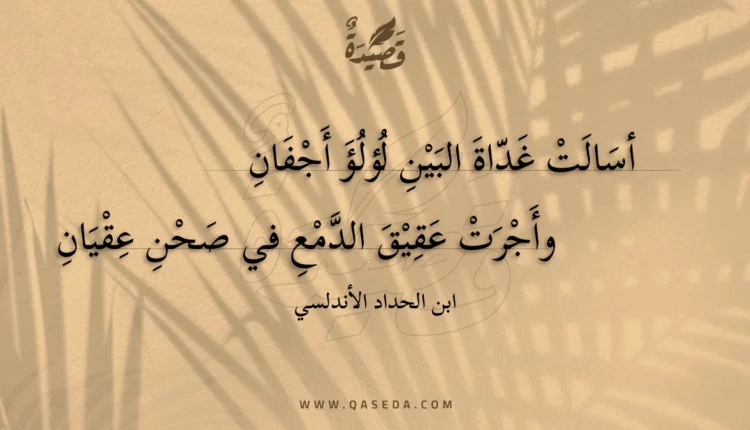 قَصِيْدَةٌ
أسَالَتْ غَدّاةَ البَيْنِ لُؤلُؤَ أَجْفَانِ
وأَجْرَتْ عَقِيْقَ الدَّمْعِ في صَحْنِ عِقْيَانِ
ابن الحداد الأندلسي
WWW.QASEDA.COM